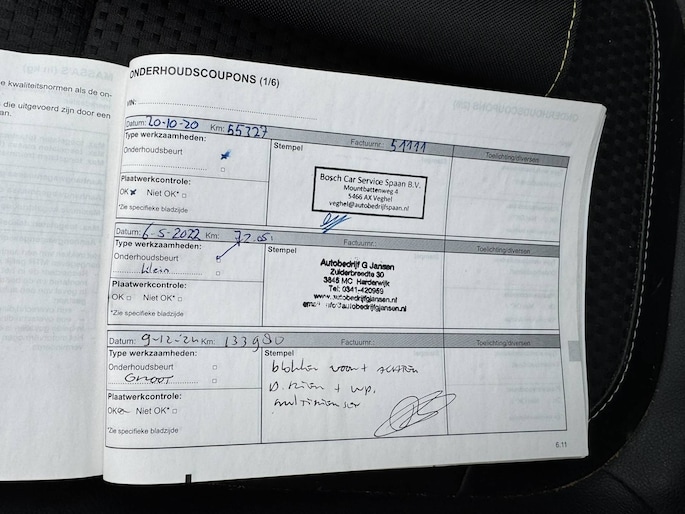 e kwaliteitsnormen als de on-
die uitgevoerd zijn door een
an.
ONDERHOUDSCOUPONS (1/6)
VIN:
Datum: 20-10-20 Km: 55327 Factuurnr.: 51111 Toelichting/diversen
Type werkzaamheden:
Stempel
Onderhoudsbeurt
Plaatwerkcontrole:
OK Niet OK*
*Zie specifieke bladzijde
Bosch Car Service Spaan B.V.
Mountbattenweg 4
5466 AX Veghel
veghel@autobedrijfspaan.nl
Datum: 6-5-2022 Km: Factuurnr.: Toelichting/diversen
Type werkzaamheden:
Stempel
Onderhoudsbeurt
klein
Plaatwerkcontrole:
OK Niet OK*
*Zie specifieke bladzijde
Autobedrijf G Jansen
Zuiderbreedte 30
3845 MC Harderwijk
Tel: 0341-420959
www.autobedrijfgjansen.nl
email info@autobedrijfgjansen.nl
Datum: 9-12-24 Km: 133980 Factuurnr.: Toelichting/diversen
Type werkzaamheden:
Stempel
Onderhoudsbeurt
GROOT
Plaatwerkcontrole:
OK Niet OK*
*Zie specifieke bladzijde
blokken voor + achter
D.riem + wp.
multiriem
6.11